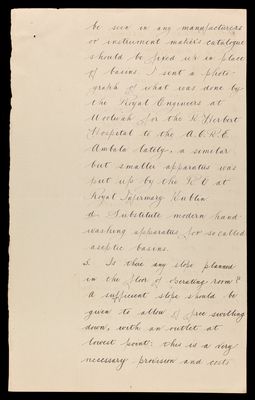 be seen in any manufacturers
or instrument maker's catalogue
should be fixed up in place
of basins. I sent a photo-
graph of what was done by
the Royal Engineers at
Woolwich for the R Herbert
Hospital to the A.C.R.E.
Ambala lately, a similar
but smaller apparatus was
put up by the R E at
Royal Infirmary Dublin
d. Substitute modern hand
washing apparatus for so called
aseptic basins.
5. Is there any slope planned
in the floor of operating room?
A sufficient slope should be
given to allow of free swilling
down, with an outlet at
lowest point: this is a very
necessary provision and costs